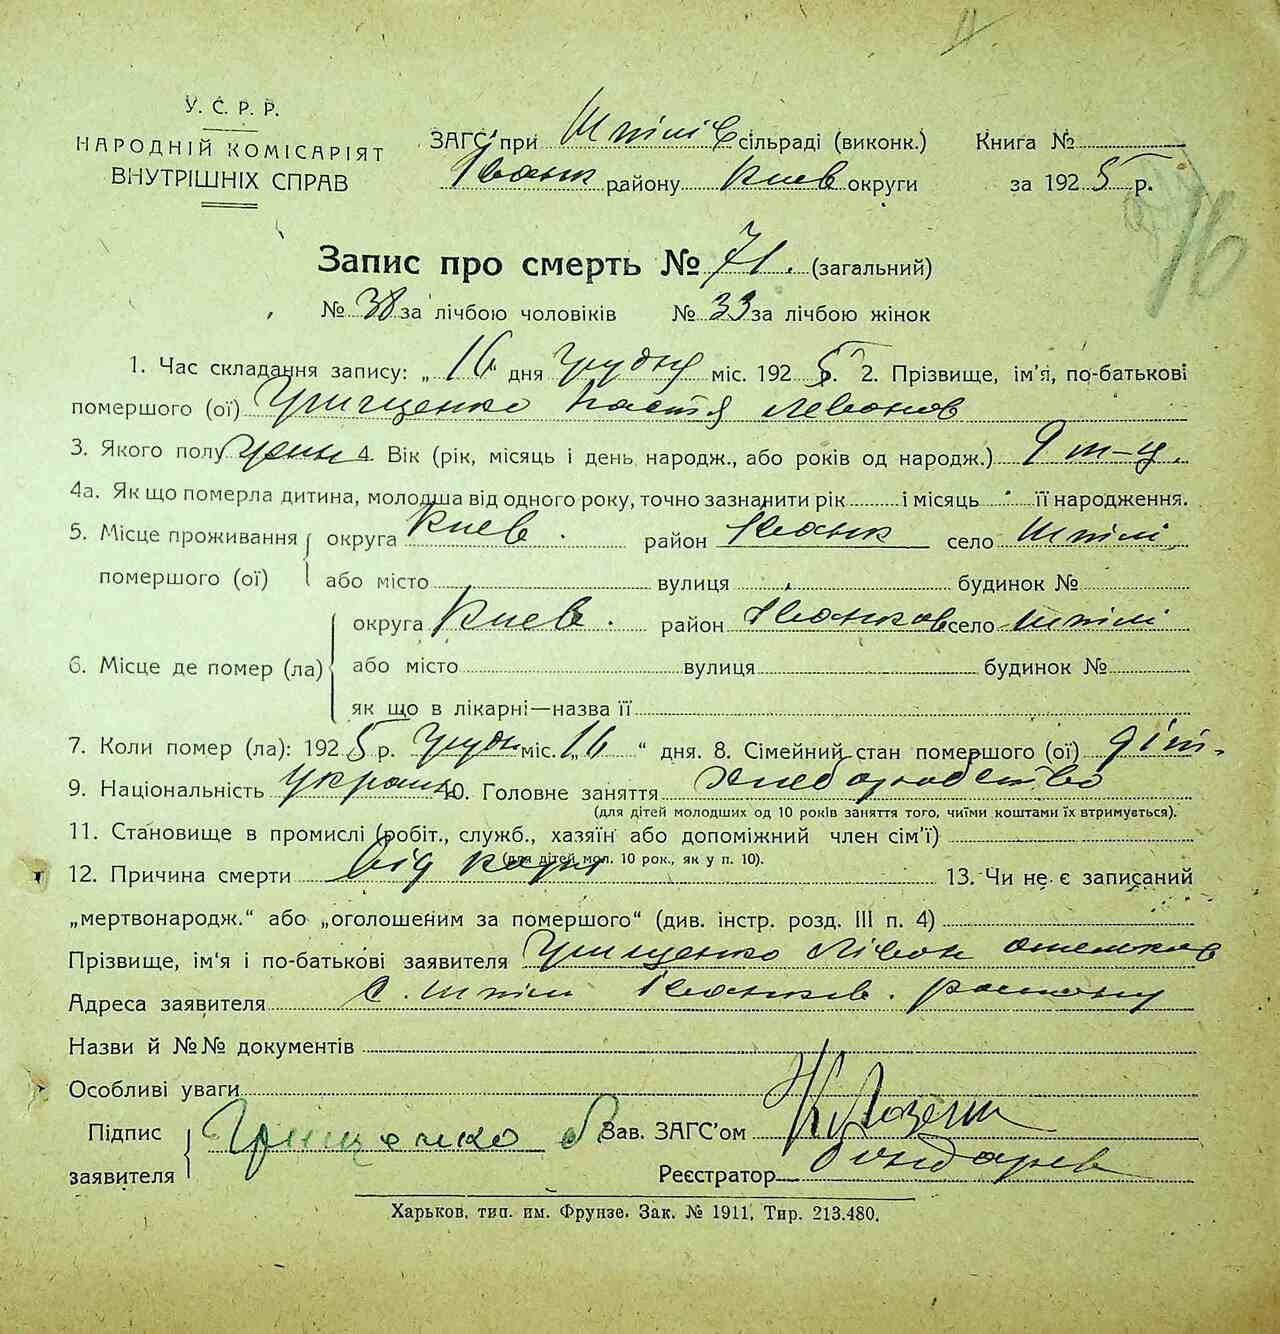 У. С. Р. Р.
НАРОДНІЙ КОМІСАРІЯТ
ВНУТРІШНІХ СПРАВ
ЗАГС при Шпілів сільраді (виконк.)
Іванк району Киев округи
Книга №
за 1925 р.
76
Запис про смерть № 71. (загальний)
№ 38 за лічбою чоловіків № 33 за лічбою жінок
1. Час складання запису: „16“ дня Грудня міс. 1925 р. 2. Прізвище, ім’я, по-батькові
помершого (ої) Грищенко Настя Левонов
3. Якого полу жин 4. Вік (рік, місяць і день народж., або років од народж.) 9 м-ц.
4а. Як що померла дитина, молодша від одного року, точно зазнанити рік і місяць її народження.
5. Місце проживання помершого (ої) округа Киев. район Іванк село Шпілі
або місто вулиця будинок №
6. Місце де помер (ла) округа Киев. район Іванков село Шпілі
або місто вулиця будинок №
як що в лікарні—назва її
7. Коли помер (ла): 1925 р. Грудн міс. „16“ дня. 8. Сімейний стан помершого (ої) діт-
9. Національність Украін 10. Головне заняття хлеборобство
(для дітей молодших од 10 років заняття того, чиїми коштами їх втримується).
11. Становище в промислі (робіт., служб., хазяїн або допоміжний член сім’ї)
(для дітей мол. 10 рок., як у п. 10).
12. Причина смерти Від кору 13. Чи не є записаний
„мертвонародж.“ або „оголошеним за помершого“ (див. інстр. розд. III п. 4)
Прізвище, ім’я і по-батькові заявителя Грищенко Лівон
Адреса заявителя с. Шпілі Іванков. району
Назви й №№ документів
Особливі уваги
Підпис заявителя Грищенко Зав. ЗАГС’ом
Реєстратор Бондарев
Харьков, тип. им. Фрунзе. Зак. № 1911, Тир. 213.480.